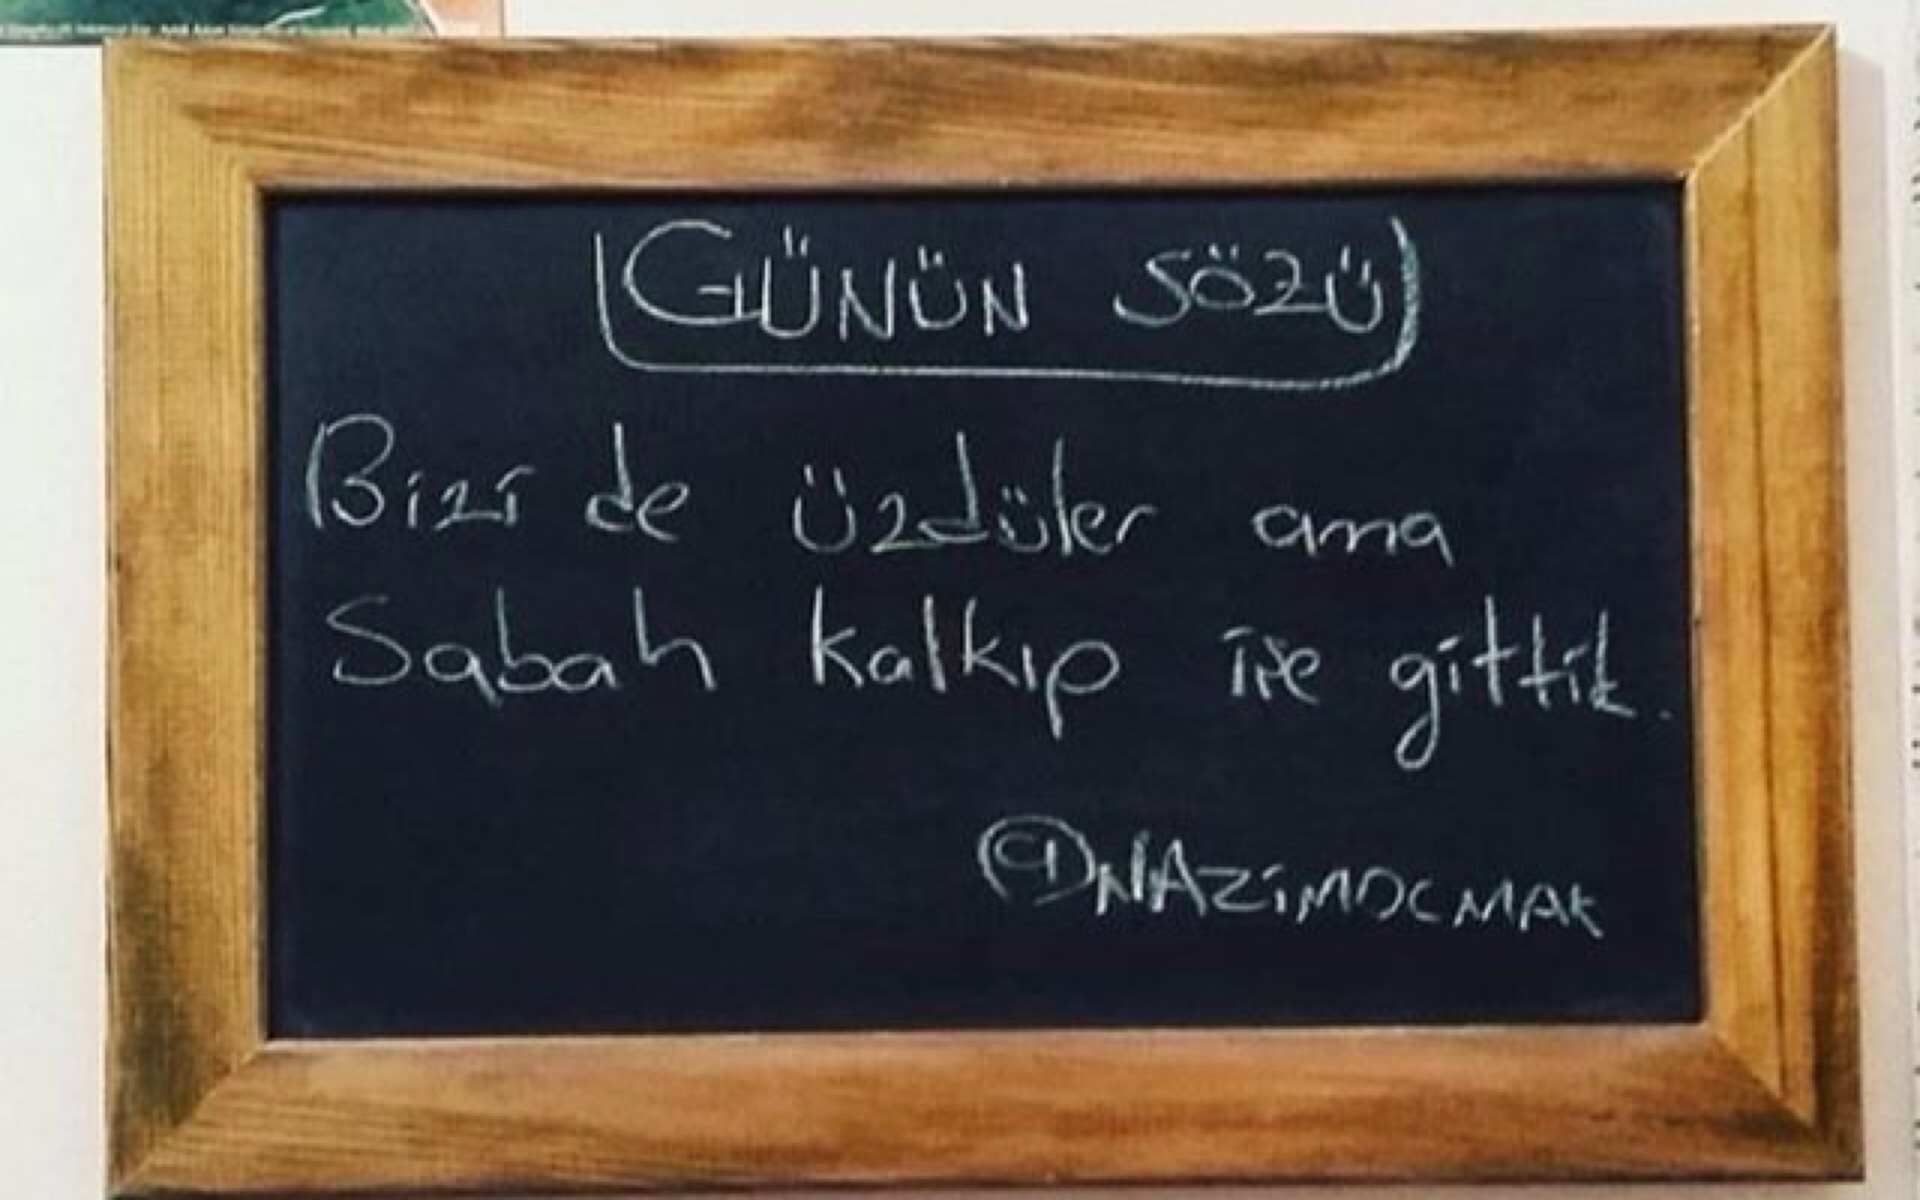 GÜNÜN SÖZÜ
Bizi de üzdüler ama
Sabah kalkıp işe gittik.
@NAZİMOCMAK